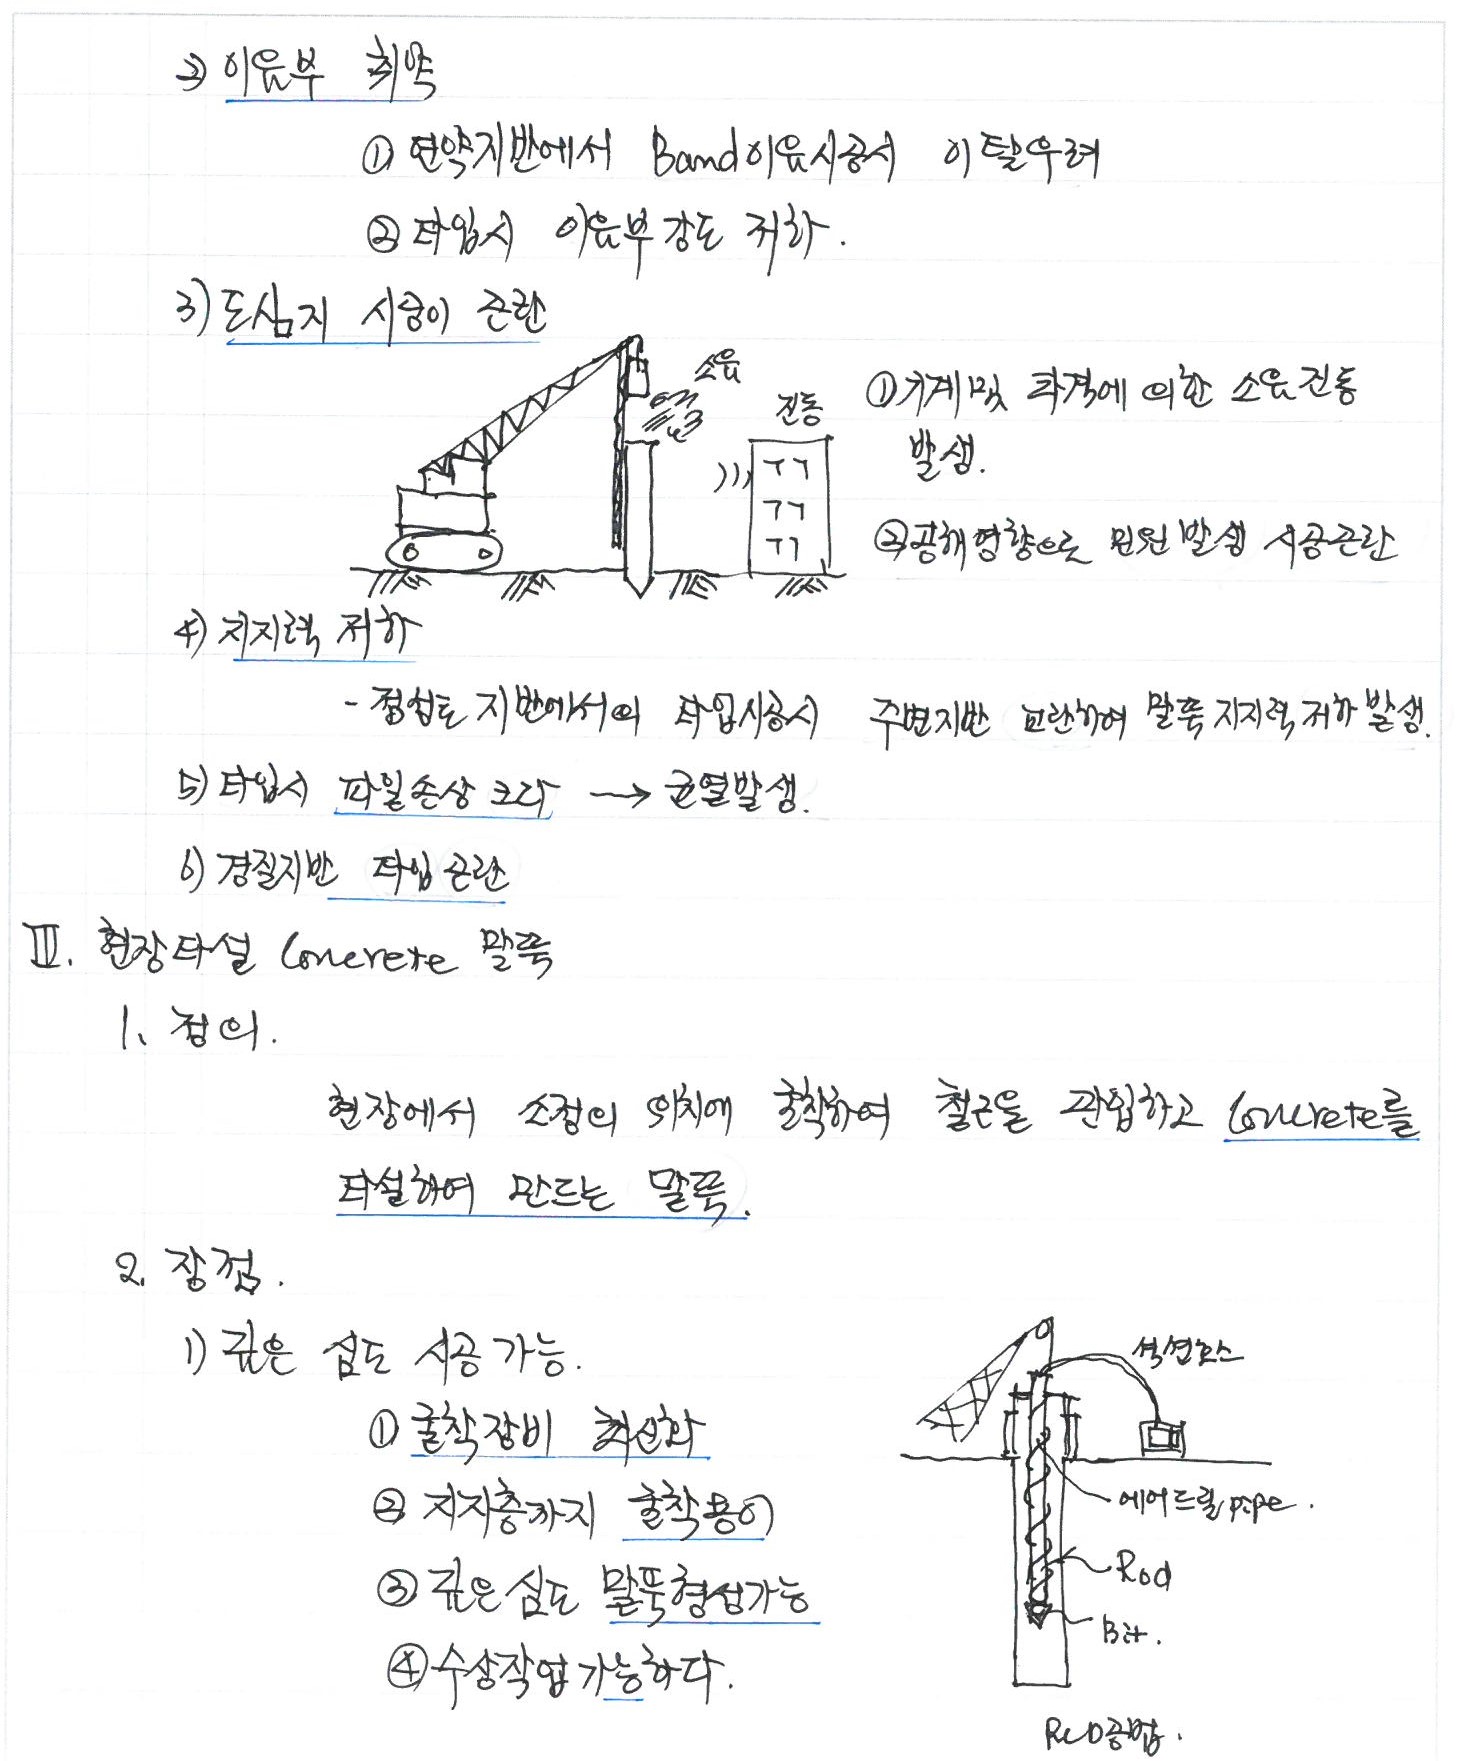 2) 이음부 취약
① 연약지반에서 Band이음시공시 이탈우려
② 타입시 이음부강도 저하.
3) 도심지 시공이 곤란
소음
진동
① 기계 및 타격에 의한 소음진동
발생.
② 공해영향으로 민원발생 시공곤란
4) 지지력 저하
- 점성토 지반에서의 타입시공시 주변지반 교란하여 말뚝지지력저하발생.
5) 타입시 파일손상 크다 → 균열발생.
6) 경질지반 타입곤란
Ⅲ. 현장타설 Concrete 말뚝
1. 정의.
현장에서 소정의 위치에 굴착하여 철근을 관입하고 Concrete를
타설하여 만드는 말뚝.
2. 장점.
1) 깊은 심도 시공가능.
① 굴착장비 최신화
② 지지층까지 굴착용이
③ 깊은심도 말뚝형성가능
④ 수상작업가능하다.
석션호스
에어드릴pipe.
Rod
Bit.
RCD공법.